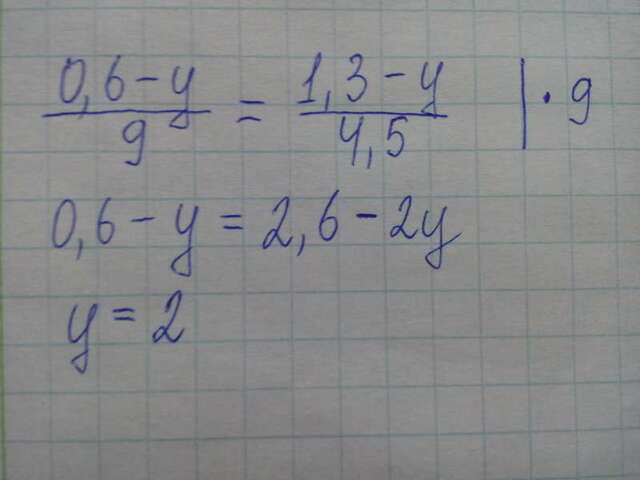 (0,6-y)/9 = (1,3-y)/4,5 |·9
0,6-y=2,6-2y
y=2